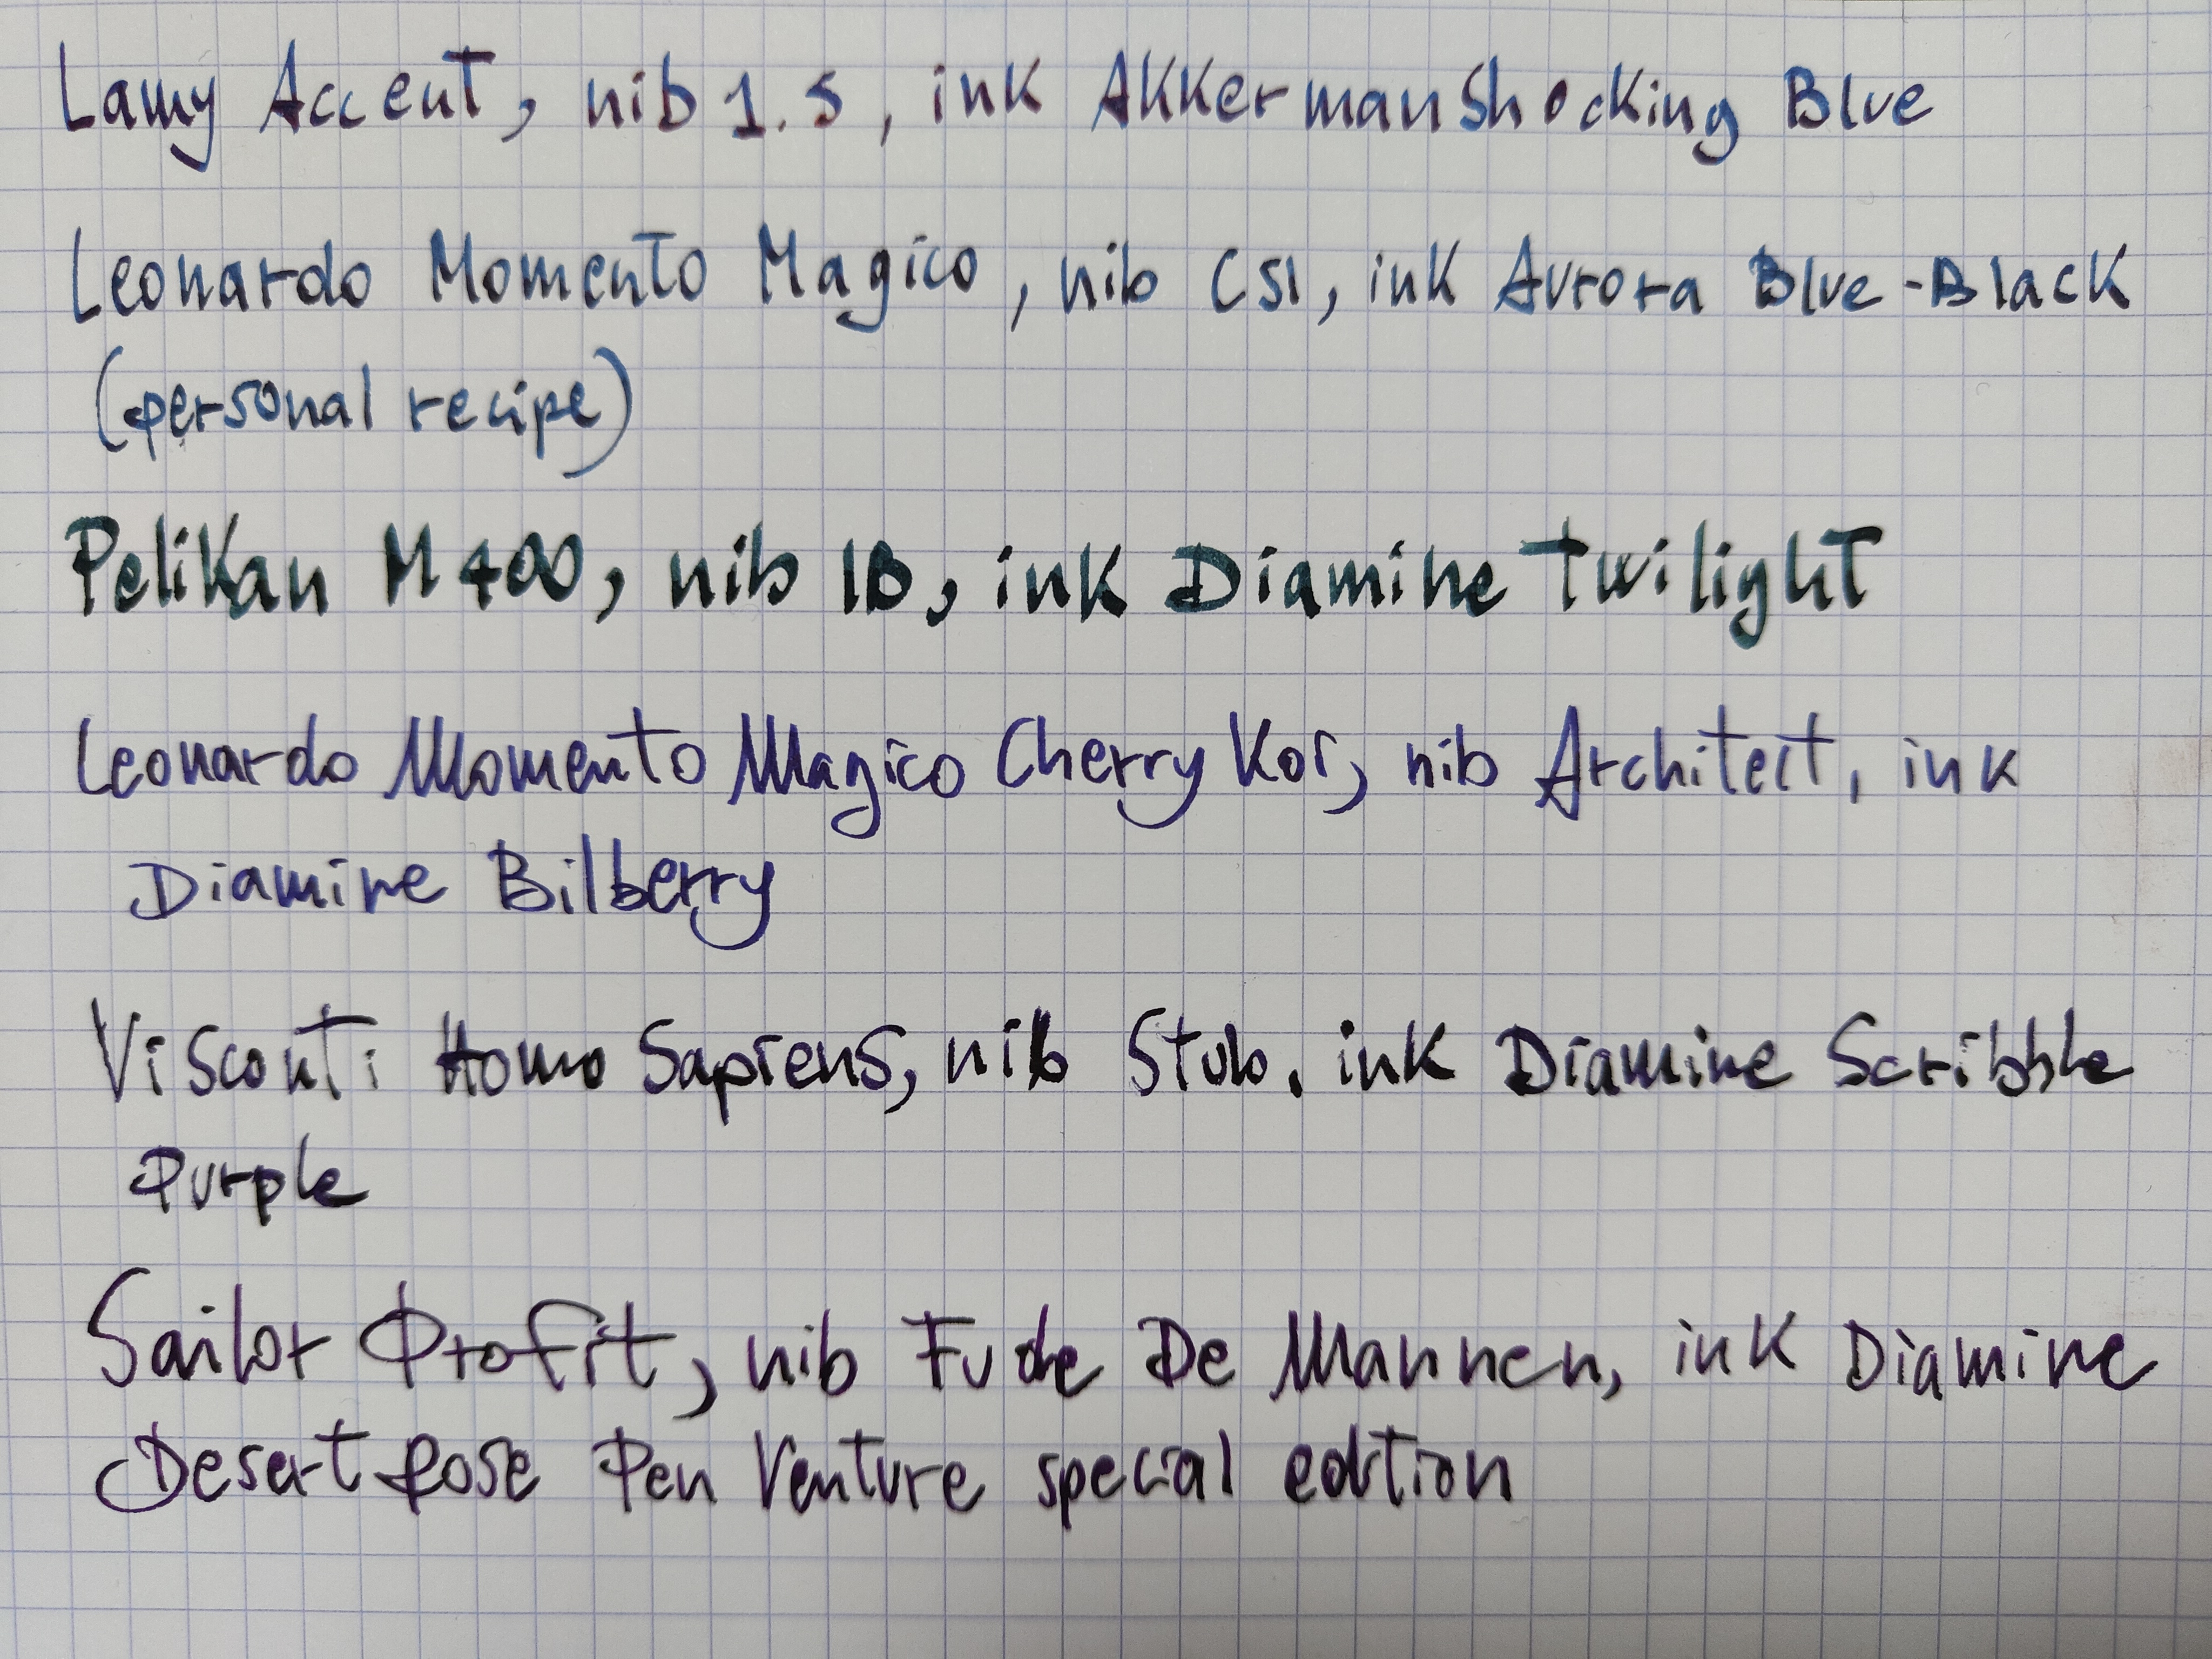 Lamy Accent, nib 1.5, ink Akkerman Shocking Blue
Leonardo Momento Magico, nib CSI, ink Aurora Blue-Black
(personal recipe)
Pelikan M400, nib IB, ink Diamine Twilight
Leonardo Momento Magico Cherry Koi, nib Architect, ink
Diamine Bilberry
Visconti Homo Sapiens, nib Stub, ink Diamine Scribble
Purple
Sailor Profit, nib Fude De Mannen, ink Diamine
Desert Rose Pen Venture special edition